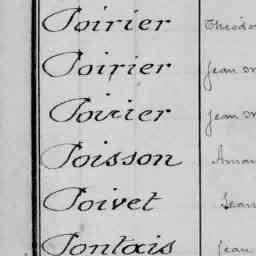 Poirier Théodo
Poirier Jean M
Poirier Jean M
Poisson Aman
Poivet Jean
Pontais Jean